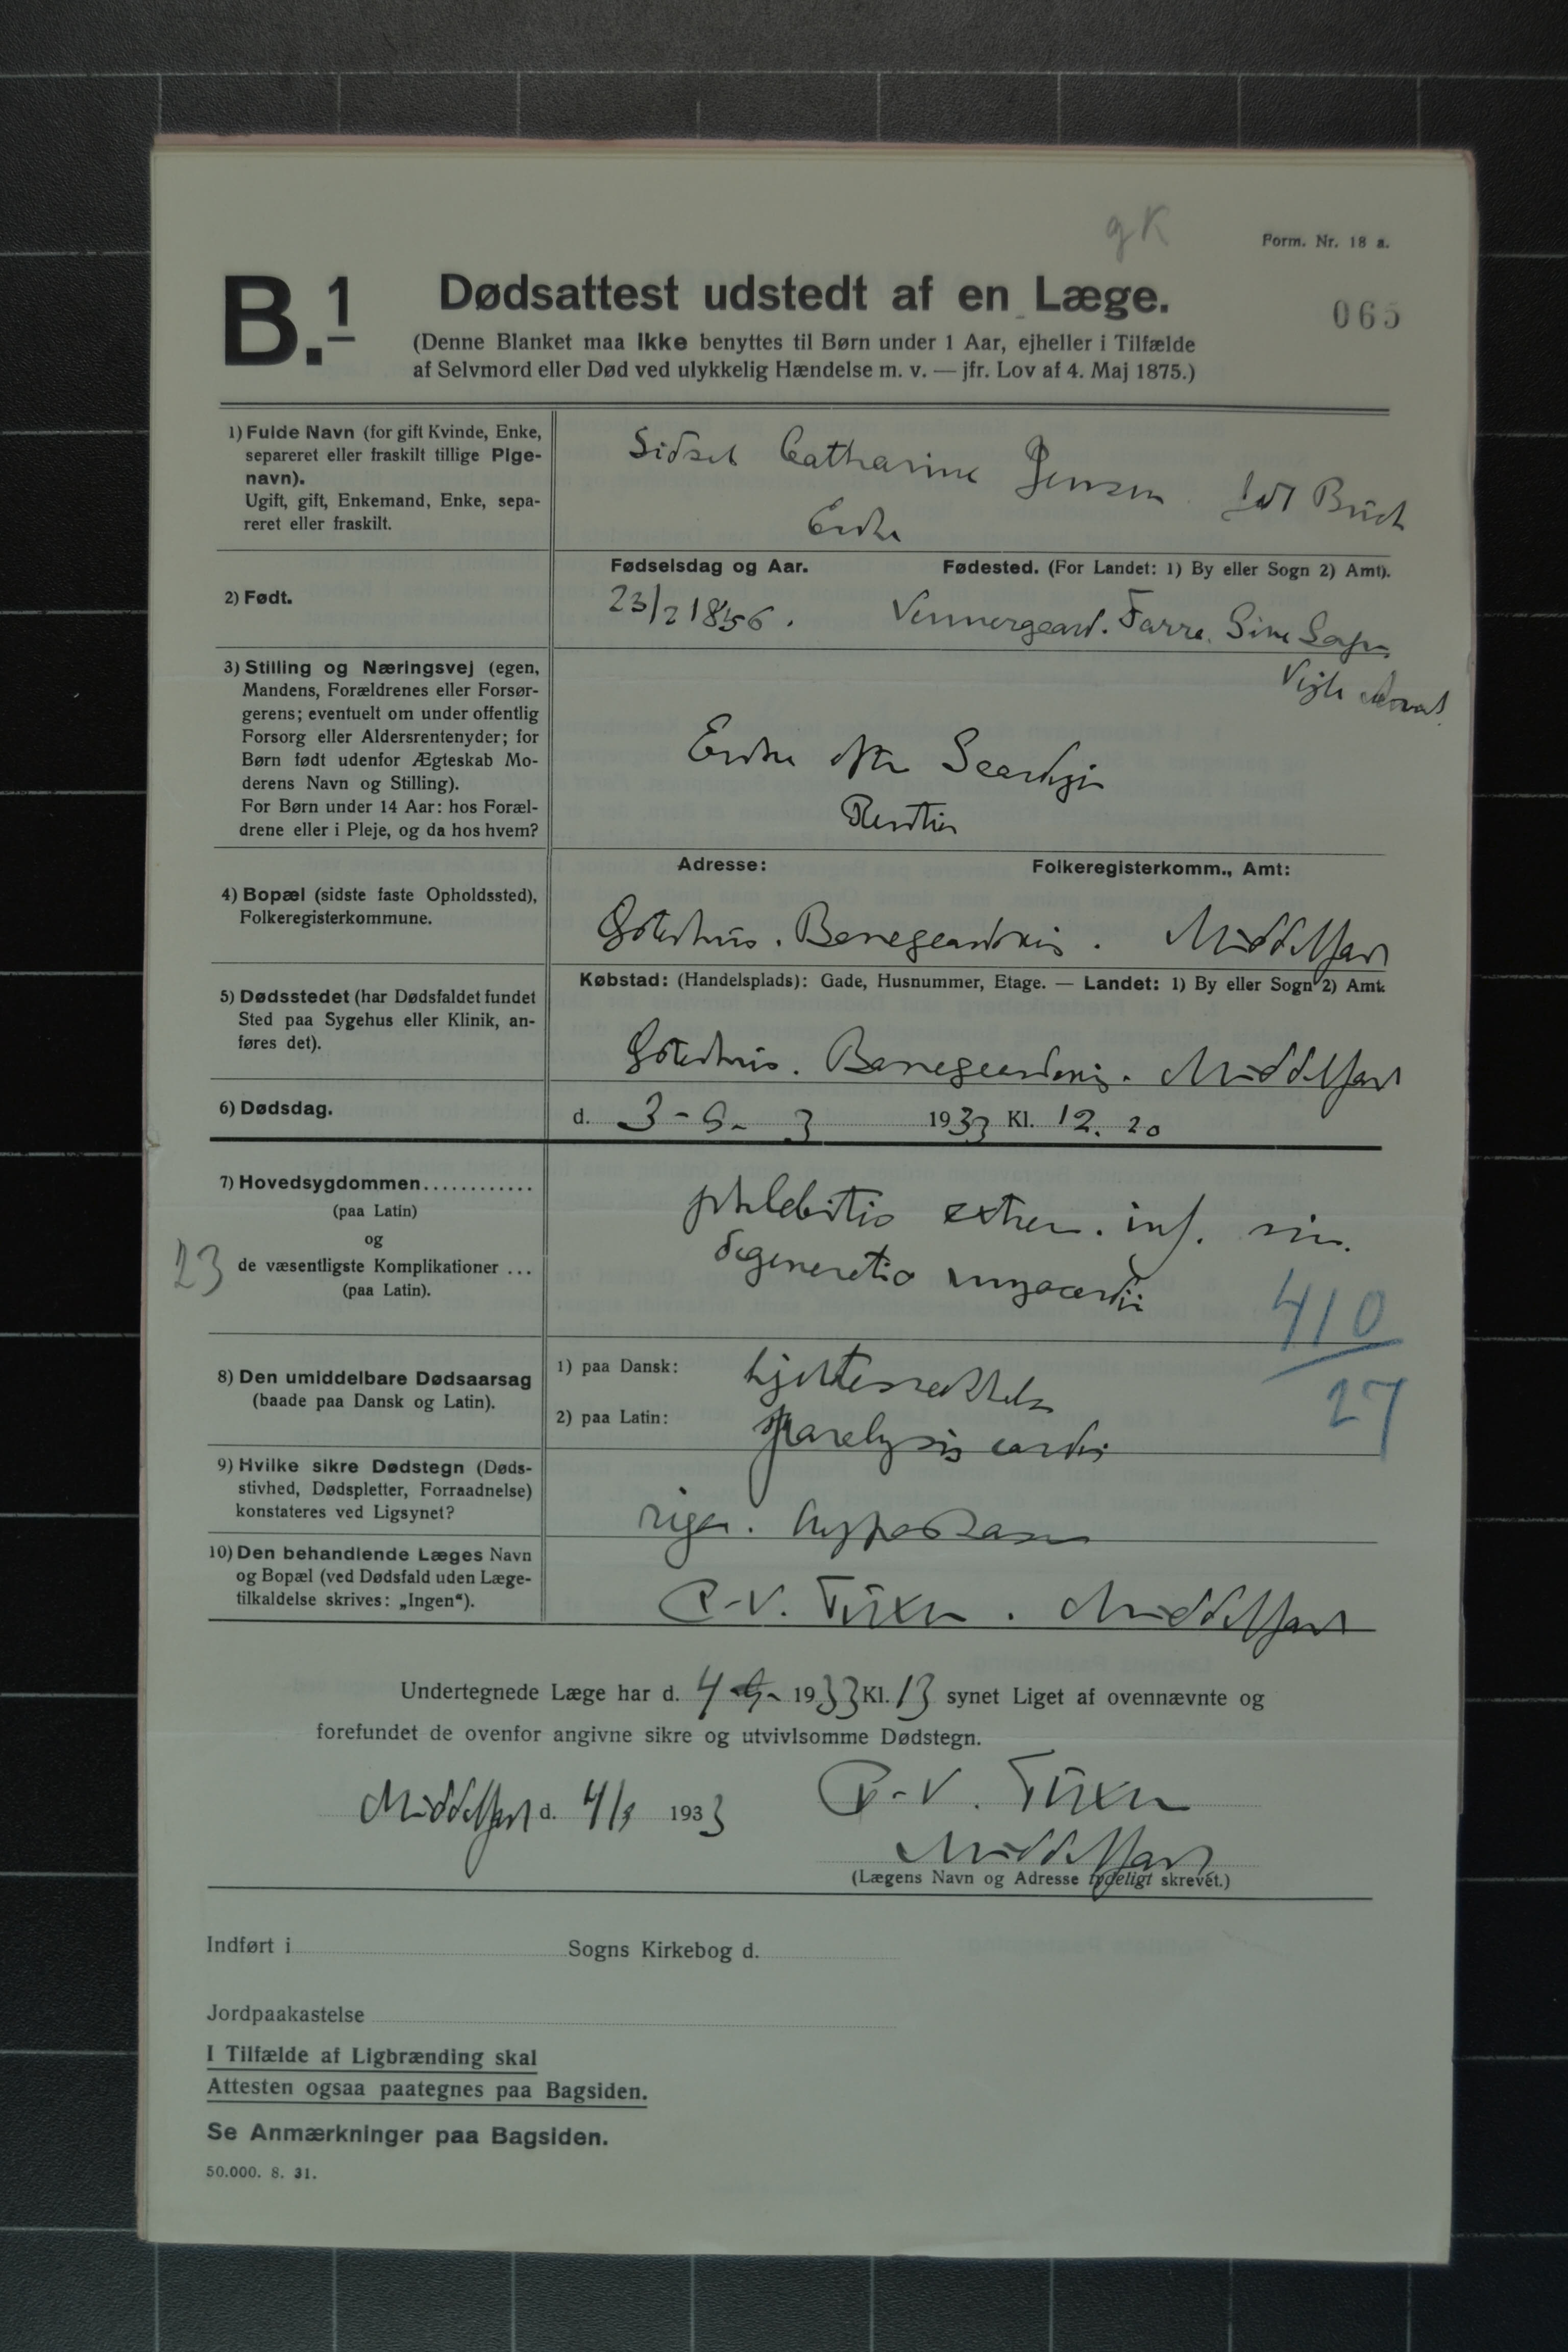 gK
Form. Nr. 18 a.
B.1
Dødsattest udstedt af en Læge.
065
(Denne Blanket maa ikke benyttes til Børn under 1 Aar, ejheller i Tilfælde
af Selvmord eller Død ved ulykkelig Hændelse m. v. — jfr. Lov af 4. Maj 1875.)
1) Fulde Navn (for gift Kvinde, Enke,
separeret eller fraskilt tillige Pige-
navn).
Ugift, gift, Enkemand, Enke, sepa-
reret eller fraskilt.
Sidsel Catharine Jensen født Buch
Enke
2) Født.
Fødselsdag og Aar.
Fødested. (For Landet: 1) By eller Sogn 2) Amt).
23/2 1856. Farre. Sogn
Vejle Amt
3) Stilling og Næringsvej (egen,
Mandens, Forældrenes eller Forsør-
gerens; eventuelt om under offentlig
Forsorg eller Aldersrentenyder; for
Børn født udenfor Ægteskab Mo-
derens Navn og Stilling).
For Børn under 14 Aar: hos Foræl-
drene eller i Pleje, og da hos hvem?
Enke efter
Rentier
4) Bopæl (sidste faste Opholdssted),
Folkeregisterkommune.
Adresse:
Folkeregisterkomm., Amt:
Middelfart
5) Dødsstedet (har Dødsfaldet fundet
Sted paa Sygehus eller Klinik, an-
føres det).
Købstad: (Handelsplads): Gade, Husnummer, Etage. — Landet: 1) By eller Sogn 2) Amt.
Middelfart
6) Dødsdag.
d. 3 1933 Kl. 12.20
7) Hovedsygdommen............
(paa Latin)
og
de væsentligste Komplikationer ...
(paa Latin).
23
phlebitis extrem. inf. sin.
degeneratio myocardii
410
27
8) Den umiddelbare Dødsaarsag
(baade paa Dansk og Latin).
1) paa Dansk: Hjertelammelse
2) paa Latin: paralysis cordis
9) Hvilke sikre Dødstegn (Døds-
stivhed, Dødspletter, Forraadnelse)
konstateres ved Ligsynet?
rigor. hypostaser
10) Den behandlende Læges Navn
og Bopæl (ved Dødsfald uden Læge-
tilkaldelse skrives: „Ingen“).
P-V. Tuxen. Middelfart
Undertegnede Læge har d. 4 1933 Kl. 13 synet Liget af ovennævnte og
forefundet de ovenfor angivne sikre og utvivlsomme Dødstegn.
Middelfart d. 1933
P-V. Tuxen
Middelfart
(Lægens Navn og Adresse tydeligt skrevet.)
Indført i Sogns Kirkebog d.
Jordpaakastelse
I Tilfælde af Ligbrænding skal
Attesten ogsaa paategnes paa Bagsiden.
Se Anmærkninger paa Bagsiden.
50.000. 8. 31.